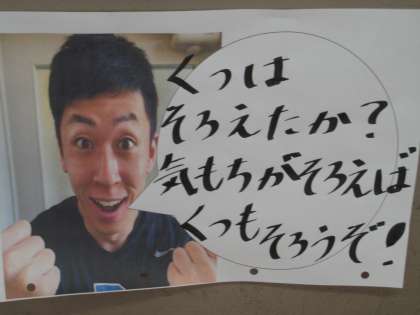 くつは
そろえたか?
気もちがそろえば
くつもそろうぞ!